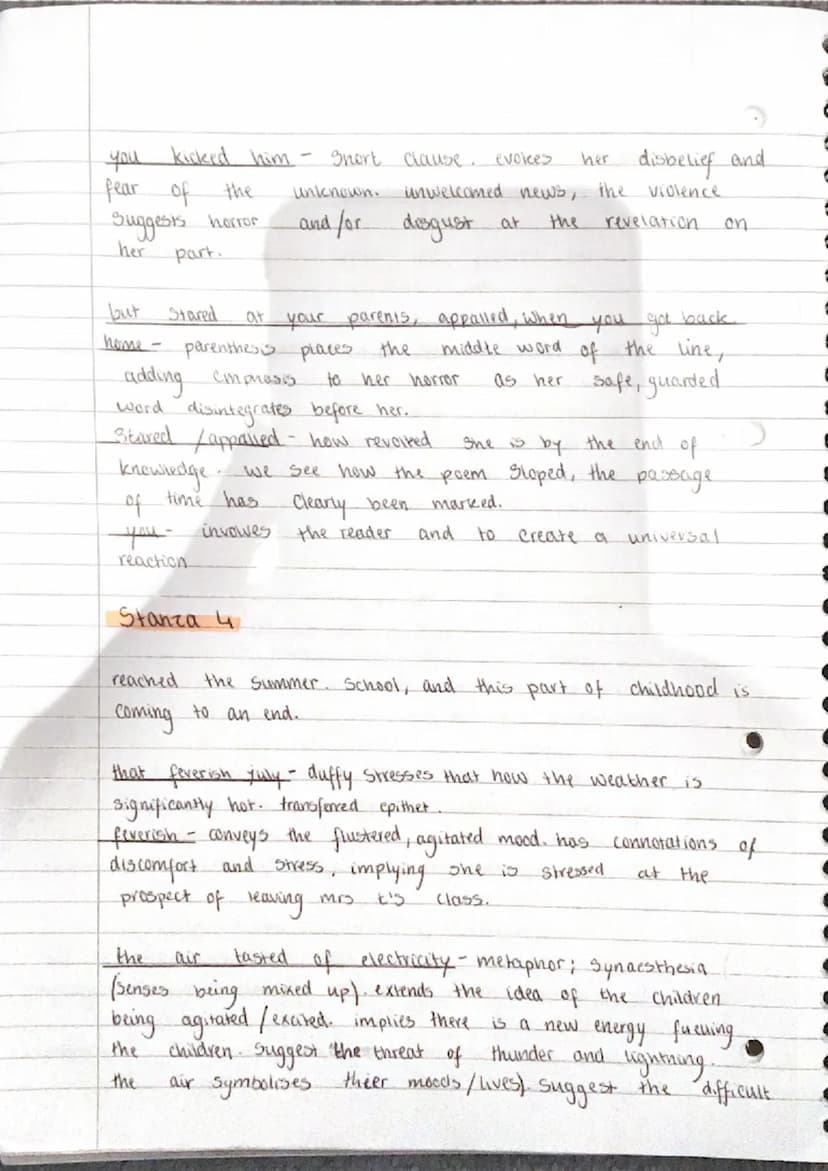 you kicked him - short clause. evokes her disbelief and
fear of the unknown. unwelcomed news, the violence
suggests horror and/or disgust at the revelation on
her part.
but stared at your parents, appalled, when you got back
home - parenthesis places the middle word of the line,
adding emphasis to her horror as her safe, guarded
word disintegrates before her.
Stared /appalled - how revolted she is by the end of
knowledge. we see how the poem sloped, the passage
of time has clearly been marked.
you - involves the reader and to create a universal
reaction
Stanza 4
reached the summer. School, and this part of childhood is
coming to an end.
that feverish july - duffy stresses that how the weather is
significantly hot. transferred epithet.
feverish - conveys the flustered, agitated mood. has connotations of
discomfort and stress, implying she is stressed at the
prospect of leaving mrs t's class.
the air tasted of electricity - metaphor; synaesthesia
(senses being mixed up). extends the idea of the children
being agitated /excited. implies there is a new energy fueling
the children. suggest the threat of thunder and lightning.
the air symbolises thier moods /lives). suggest the difficult